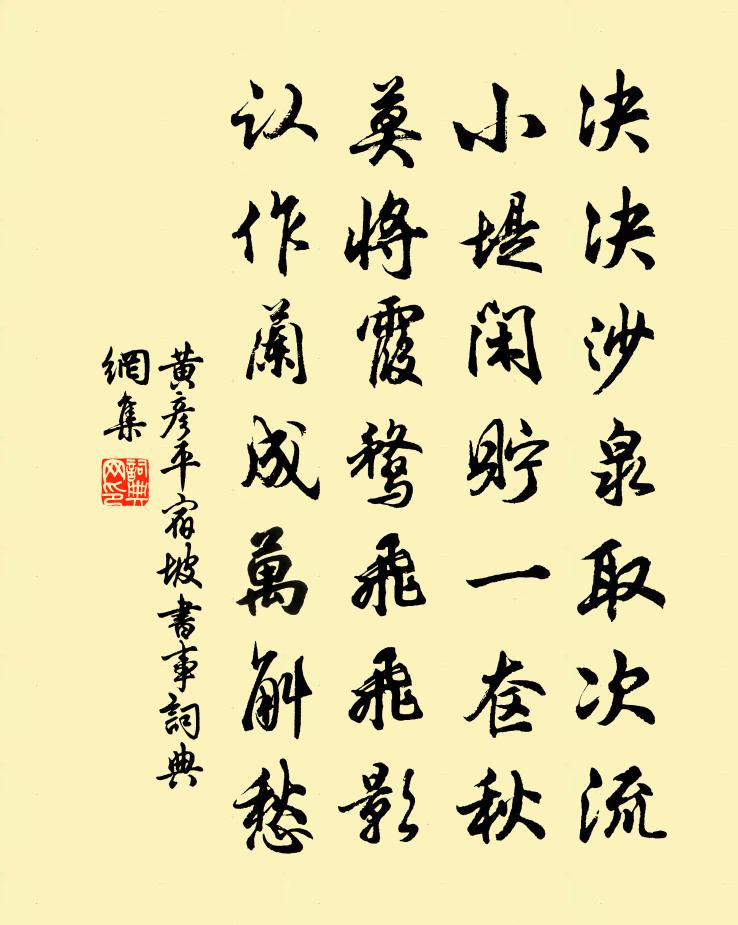 决决沙泉取次流
小堤閑貯一奁秋
莫將霞鶩飛飛影
认作蘭成萬斛愁
黄彦平宿坡書事詞典
網集
詞典網印